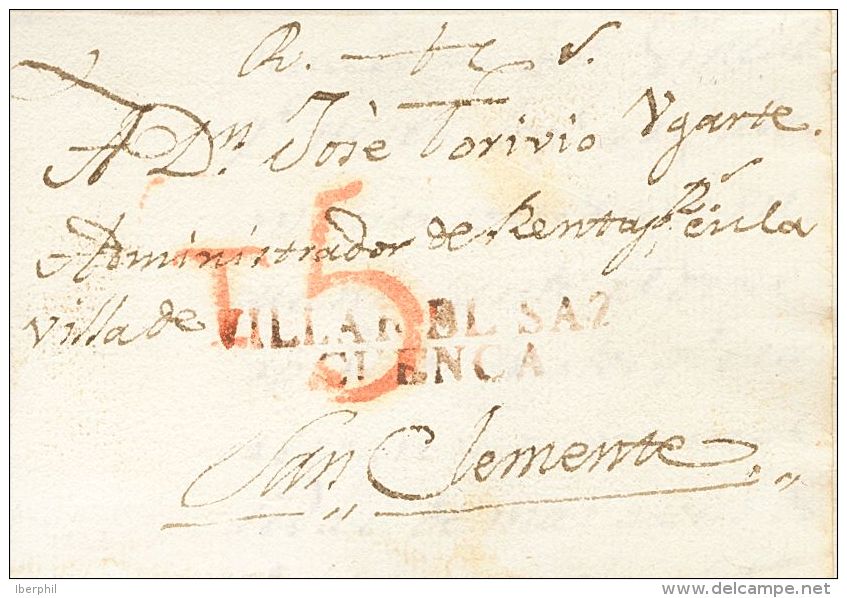 R. tz s.
A Dn. Josè Torivio Ygarte.
Administrador de Rentas Rs. en la
Villa de
T5
VILLAR DL SAZ
CUENCA
San Clemente.
Iberphil
delcampe.net